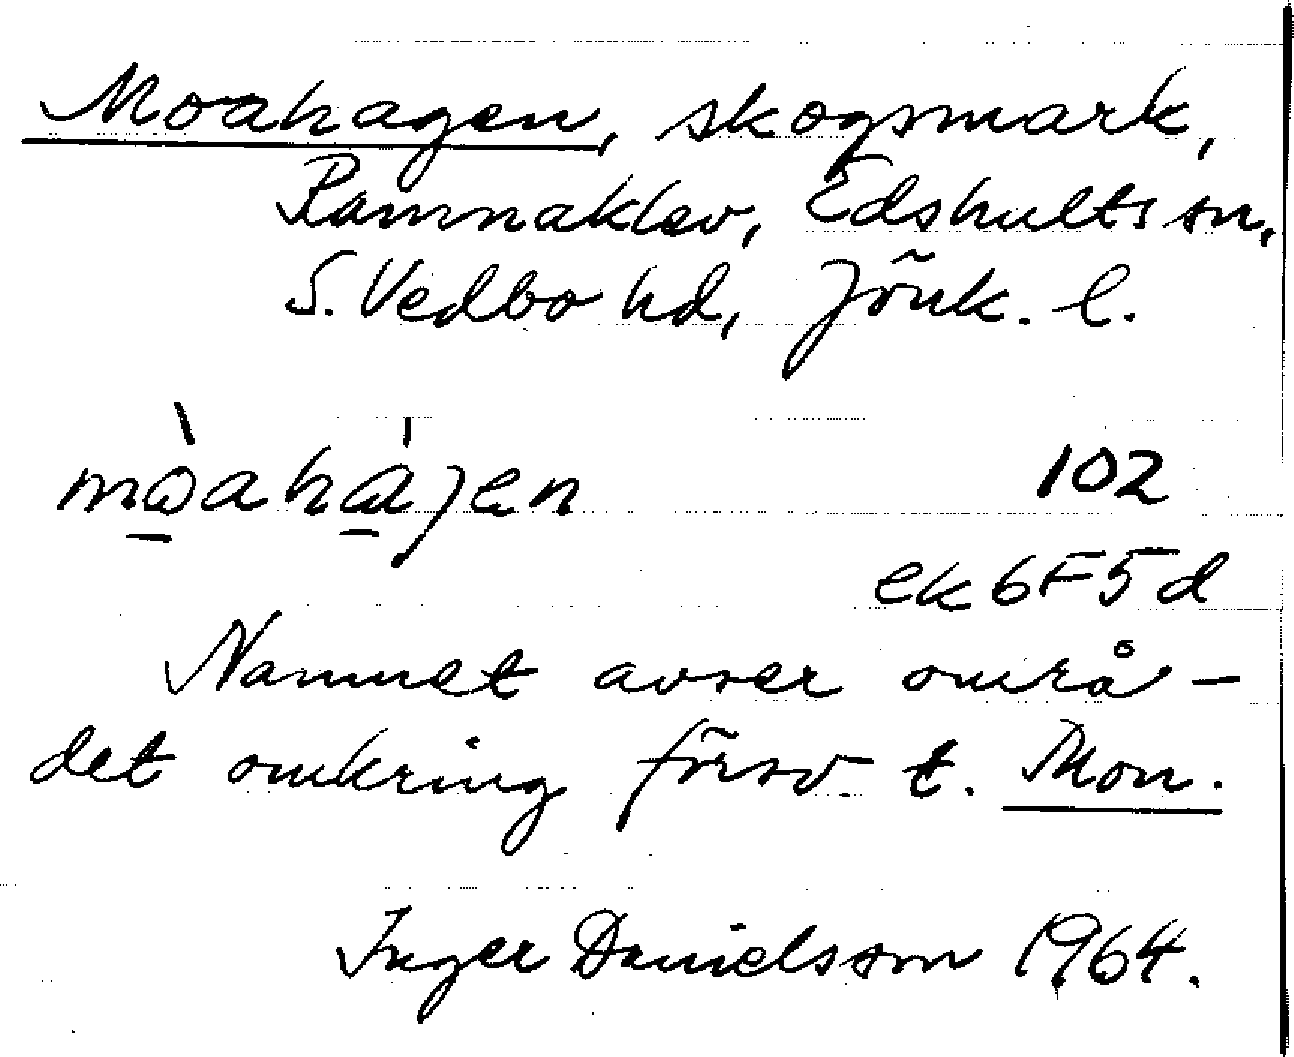 Moahagen, skogsmark,
Ramnaklev, Edshults sn,
S. Vedbo hd, Jönk. l.
mòahájen 102
ek 6F5d
Namnet avser områ-
det omkring försv. t. Mon.
Inger Danielsson 1964.